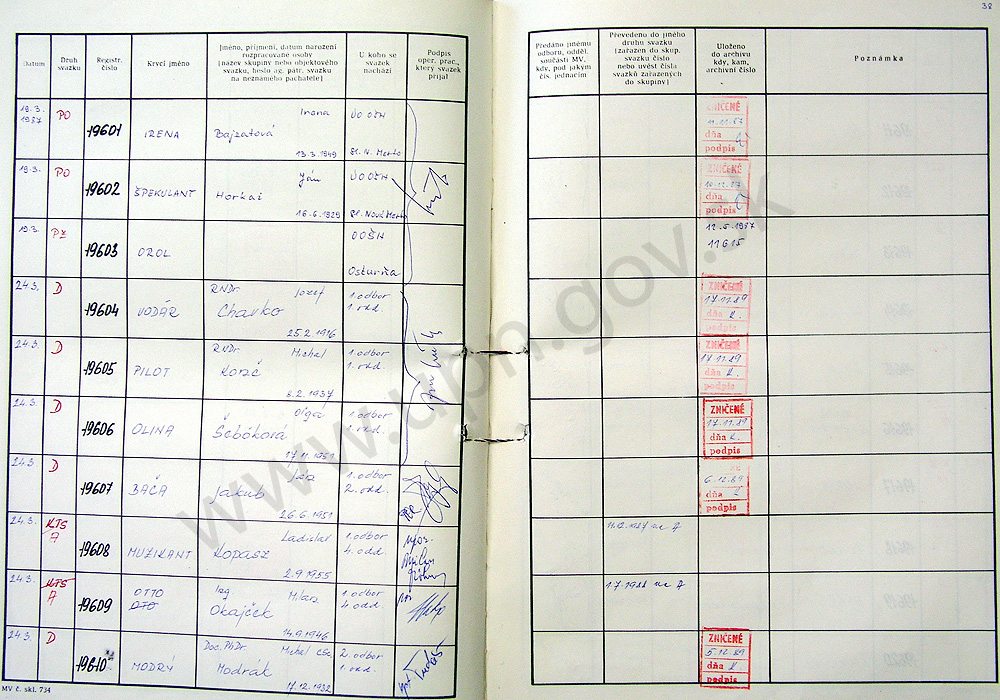 38
Datum
Druh svazku
Registr. číslo
Krycí jméno
Jméno, příjmení, datum narození
rozpracované osoby
[název skupiny nebo objektového
svazku, heslo ag. pátr. svazku
na neznámého pachatele]
U koho se
svazek
nachází
Podpis
oper. prac.,
který svazek
přijal
Předáno jinému
odboru, odděl.
součásti MV,
kdy, pod jakým
čís. jednacím
Převedeno do jiného
druhu svazku
[zařazen do skup.
svazku číslo
nebo uvést čísla
svazků zařazených
do skupiny]
Uloženo
do archivu
kdy, kam,
archivní číslo
Poznámka
19.3. 1987 PO 19601 IRENA Irena Bajzatová 13.3.1949 ÚO OŠH
ZNIČENÉ dňa podpis
19.3. PO 19602 ŠPEKULANT Ján Horkai 16.6.1929 ÚO OŠH
ZNIČENÉ 10.12.89 dňa podpis
19.3. 19603 OROL OOŠH Osturňa
12.5.1987
11615
24.3. D 19604 VODÁR RNDr. Jozef Charko 25.2.1916 1.odbor 1.odd.
ZNIČENÉ 17.11.89 dňa podpis
24.3. D 19605 PILOT RNDr. Michal 8.2.1937 1.odbor 1.odd.
ZNIČENÉ 17.11.89 dňa podpis
24.3. D 19606 OLINA Oľga Šebőková 17.11.1951 1.odbor 1.odd.
ZNIČENÉ 17.11.89 dňa podpis
24.3. D 19607 BAČA Jakub 26.6.1951 1.odbor 2.odd.
6.12.89 dňa podpis
24.3. KTS A 19608 MUZIKANT Ladislav Kopasz 2.9.1955 1.odbor 4.odd.
24.3. KTS A 19609 OTTO OTO Ing. Milan Okajček 14.9.1946 1.odbor 4.odd.
24.3. D 19610 MODRÝ Doc.PhDr. Michal CSc. Modrák 17.12.1932 2.odbor 1.odd.
ZNIČENÉ 5.12.89 dňa podpis
MV č. skl. 734
www.upn.gov.sk